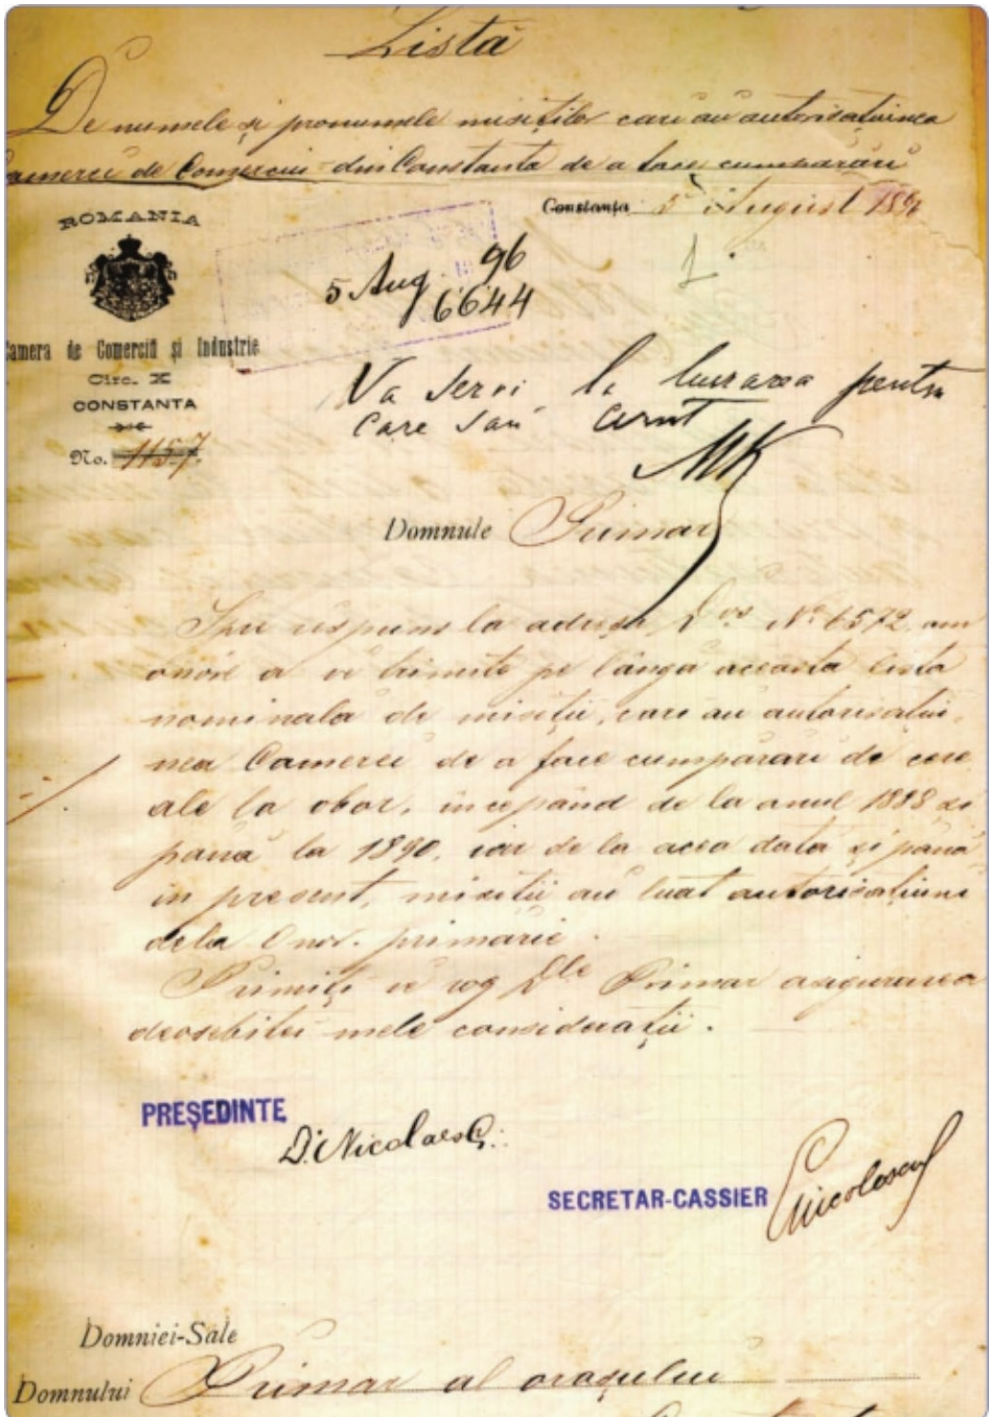 Lista
De numele și pronumele misiților cari au autorisațiunea
Camerei de Comerciu din Constanta de a face cumpărări
ROMANIA
Constanța 5 August 1896
5 Aug. 96
6644
Camera de Comerciŭ și Industrie
Circ. X
CONSTANTA
No. 1157.
Va servi la lucrarea pentru
care s'aŭ cerut
MK
Domnule Primar
Spre respuns la adresa D vs No 6572, am
onore a ve trimite pe lângă aceasta lista
nominala de misiții, cari au autorisațiu-
nea Camerei de a face cumpărari de cere
ale la obor, începând de la anul 1888 și
pană la 1890, iar de la acea dată și până
in present, misiții au luat autorisațiuni
dela Onor. primărie.
Primiți ve rog Dle Primar asigurarea
deosebitei mele considerații.
PREȘEDINTE
D. Nicolaescu
SECRETAR-CASSIER
Nicolescu
Domniei-Sale
Domnului Primar al orașului